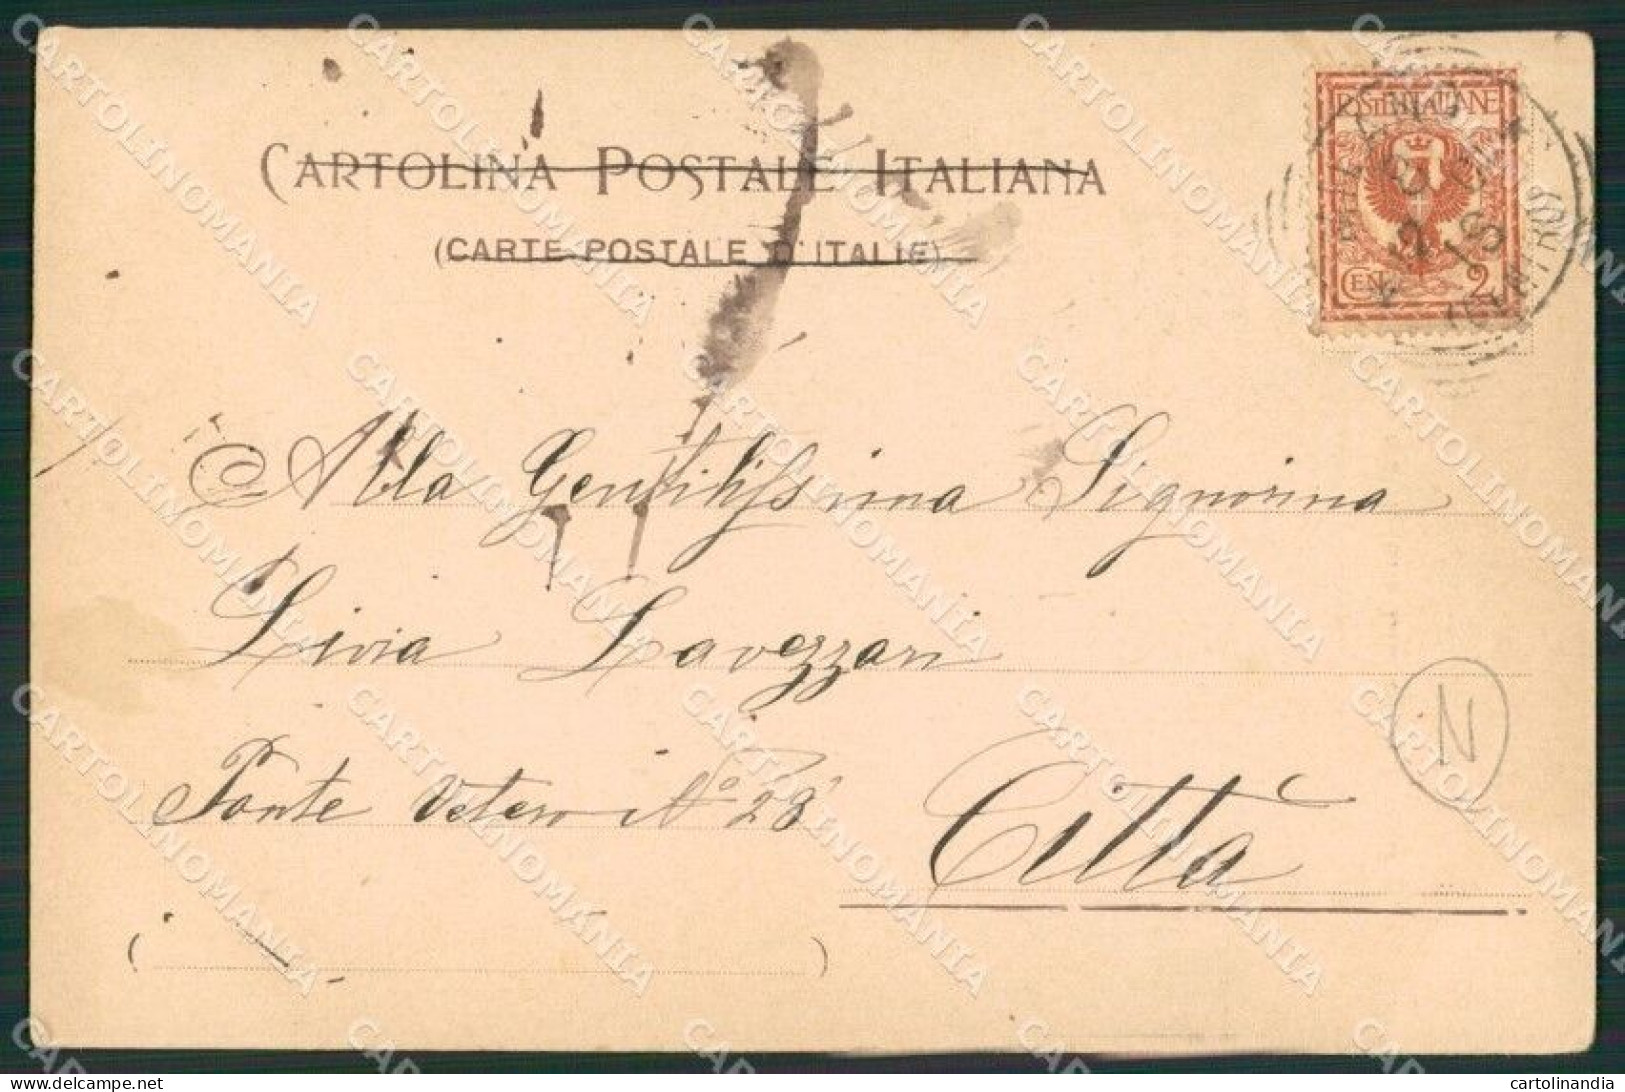 CARTOLINA POSTALE ITALIANA
(CARTE POSTALE D'ITALIE)
POSTE ITALIANE
CEN. 2
MILANO
Alla Gentilissima Signorina
Livia Lavezzari
Ponte Vetero No 28
Città
N
CARTOLINOMANIA
delcampe.net
cartolinandia